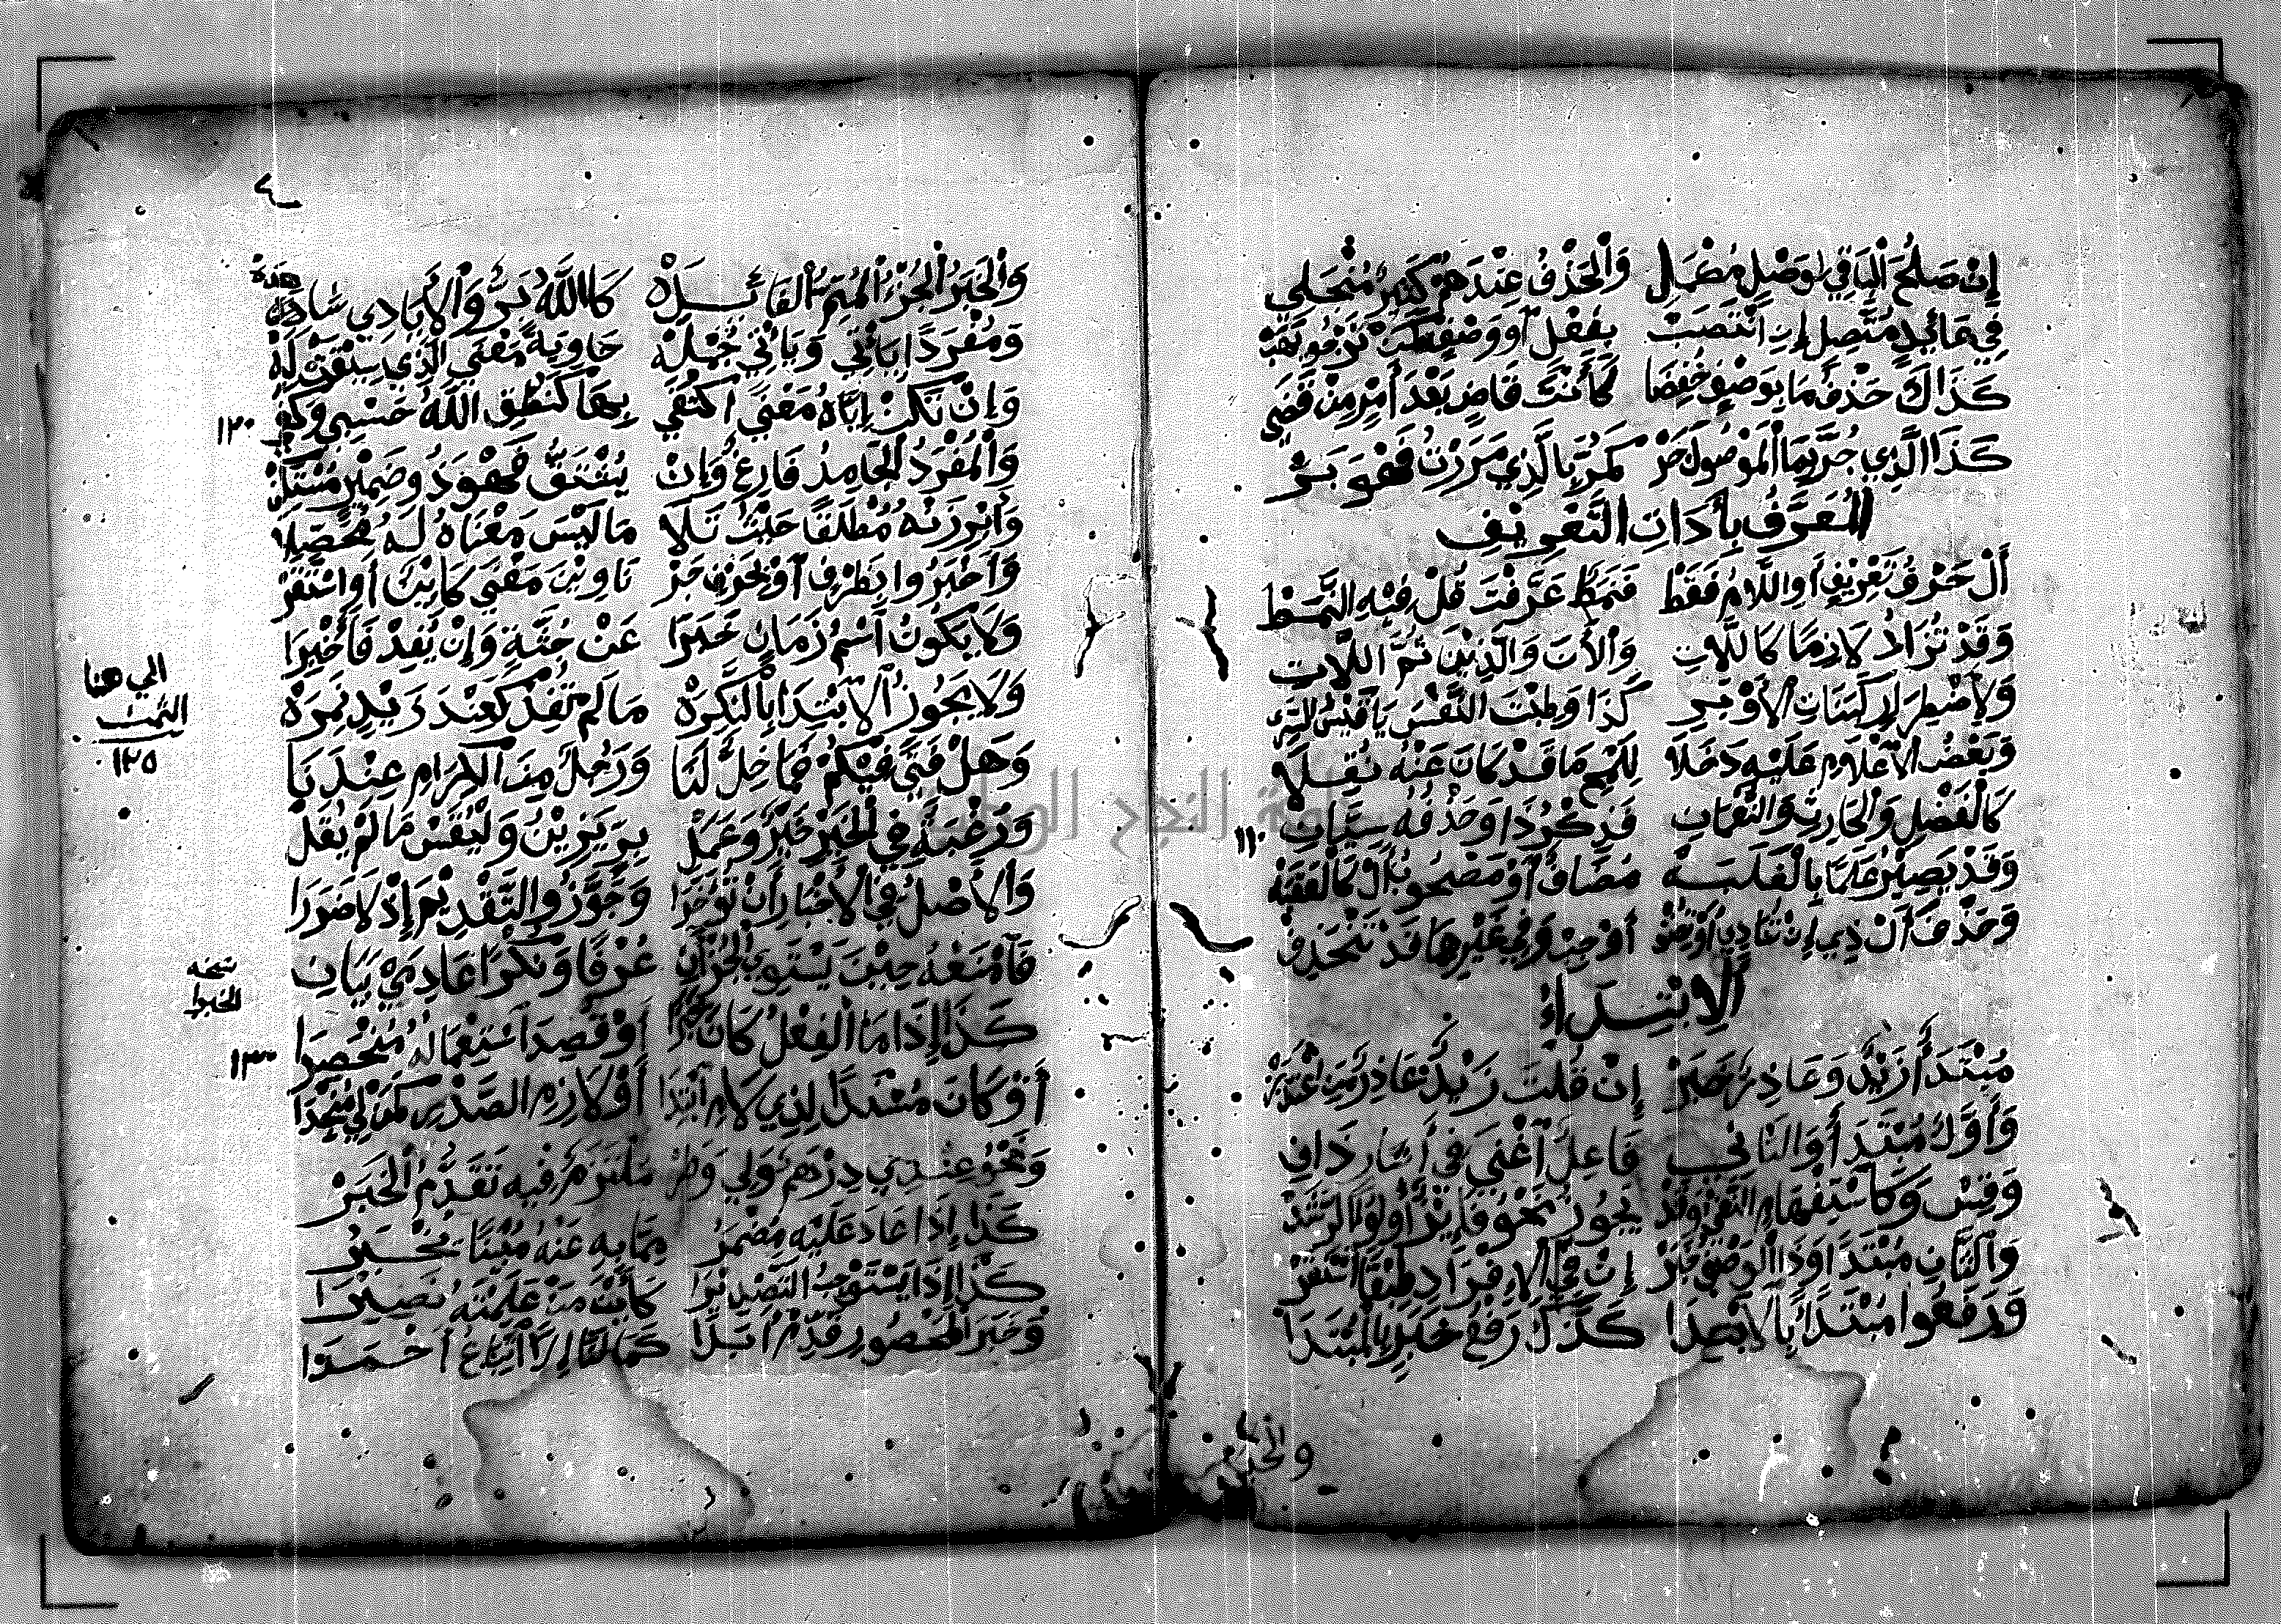 إِنْ صَلُحَ الْبَاقِي لِوَصْلٍ مُكْمِلِ وَالْحَذْفُ عِنْدَهُمْ كَثِيرٌ مُنْجَلِي
فِي عَائِدٍ مُتَّصِلٍ إِنِ انْتَصَبْ بِفِعْلٍ أَوْ وَصْفٍ كَمَنْ نَرْجُو يَهَبْ
كَذَاكَ حَذْفُ مَا بِوَصْفٍ خُفِضَا كَأَنْتَ قَاضٍ بَعْدَ أَمْرٍ مِنْ قَضَى
كَذَا الَّذِي جُرَّ بِمَا الْمَوْصُولَ جَرّْ كَمُرَّ بِالَّذِي مَرَرْتُ فَهْوَ بَرّْ
الْمُعَرَّفُ بِأَدَاتِ التَّعْرِيفِ
أَلْ حَرْفُ تَعْرِيفٍ أَوِ اللَّامُ فَقَطْ فَنَمَطٌ عَرَّفْتَ قُلْ فِيهِ النَّمَطْ
وَقَدْ تُزَادُ لَازِمًا كَاللَّاتِ وَالْآنَ وَالَّذِينَ ثُمَّ اللَّاتِ
وَلِاضْطِرَارٍ كَبَنَاتِ الْأَوْبَرِ كَذَا وَطِبْتَ النَّفْسَ يَا قَيْسُ السَّرِي
وَبَعْضُ الْأَعْلَامِ عَلَيْهِ دَخَلَا لِلَمْحِ مَا قَدْ كَانَ عَنْهُ نُقِلَا
كَالْفَضْلِ وَالْحَارِثِ وَالنُّعْمَانِ فَذِكْرُ ذَا وَحَذْفُهُ سِيَّانِ ١١٠
وَقَدْ يَصِيرُ عَلَمًا بِالْغَلَبَهْ مُضَافٌ أَوْ مَصْحُوبُ أَلْ كَالْعَقَبَهْ
وَحَذْفَ أَلْ ذِي إِنْ تُنَادِ أَوْ تُضِفْ أَوْجِبْ وَفِي غَيْرِهِمَا قَدْ تَنْحَذِفْ
الِابْتِدَاءُ
مُبْتَدَأٌ زَيْدٌ وَعَاذِرٌ خَبَرْ إِنْ قُلْتَ زَيْدٌ عَاذِرٌ مَنِ اعْتَذَرْ
وَأَوَّلٌ مُبْتَدَأٌ وَالثَّانِي فَاعِلٌ اغْنَى فِي أَسَارٍ ذَانِ
وَقِسْ وَكَاسْتِفْهَامٍ النَّفْيُ وَقَدْ يَجُوزُ نَحْوُ فَائِزٌ أُولُو الرَّشَدْ
وَالثَّانِ مُبْتَدًا وَذَا الْوَصْفُ خَبَرْ إِنْ فِي الْإِفْرَادِ طِبْقًا اسْتَقَرّْ
وَرَفَعُوا مُبْتَدَأً بِالِابْتِدَا كَذَاكَ رَفْعُ خَبَرٍ بِالْمُبْتَدَا
والخبر
٤
وَالْخَبَرُ الْجُزْءُ الْمُتِمُّ الْفَائِدَهْ كَاللَّهُ بَرٌّ وَالْأَيَادِي شَاهِدَهْ
وَمُفْرَدًا يَأْتِي وَيَأْتِي جُمْلَهْ حَاوِيَةً مَعْنَى الَّذِي سِيقَتْ لَهْ
وَإِنْ تَكُنْ إِيَّاهُ مَعْنًى اكْتَفَى بِهَا كَنُطْقِي اللَّهُ حَسْبِي وَكَفَى ١٢٠
وَالْمُفْرَدُ الْجَامِدُ فَارِغٌ وَإِنْ يُشْتَقَّ فَهْوَ ذُو ضَمِيرٍ مُسْتَكِنْ
وَأَبْرِزَنْهُ مُطْلَقًا حَيْثُ تَلَا مَا لَيْسَ مَعْنَاهُ لَهُ مُحَصَّلَا
وَأَخْبَرُوا بِظَرْفٍ أَوْ بِحَرْفِ جَرّْ نَاوِينَ مَعْنَى كَائِنٍ أَوِ اسْتَقَرّْ
وَلَا يَكُونُ اسْمُ زَمَانٍ خَبَرَا عَنْ جُثَّةٍ وَإِنْ يُفِدْ فَأَخْبِرَا
وَلَا يَجُوزُ الِابْتِدَا بِالنَّكِرَهْ مَا لَمْ تُفِدْ كَعِنْدَ زَيْدٍ نَمِرَهْ
الى هنا
الثمن
١٢٥
وَهَلْ فَتًى فِيكُمْ فَمَا خِلٌّ لَنَا وَرَجُلٌ مِنَ الْكِرَامِ عِنْدَنَا
وَرَغْبَةٌ فِي الْخَيْرِ خَيْرٌ وَعَمَلْ بِرٍّ يَزِينُ وَلْيُقَسْ مَا لَمْ يُقَلْ
وَالْأَصْلُ فِي الْأَخْبَارِ أَنْ تُؤَخَّرَا وَجَوَّزُوا التَّقْدِيمَ إِذْ لَا ضَرَرَا
فَامْنَعْهُ حِينَ يَسْتَوِي الْجُزْآنِ عُرْفًا وَنُكْرًا عَادِمَيْ بَيَانِ
نسخه
الخبرا
كَذَا إِذَا مَا الْفِعْلُ كَانَ أَوْ قُصِدَ اسْتِعْمَالُهُ مُنْحَصِرَا ١٣٠
أَوْ كَانَ مُسْنَدًا لِذِي لَامِ ابْتِدَا أَوْ لَازِمِ الصَّدْرِ كَمَنْ لِي مُنْجِدَا
وَنَحْوُ عِنْدِي دِرْهَمٌ وَلِي وَطَرْ مُلْتَزَمٌ فِيهِ تَقَدُّمُ الْخَبَرْ
كَذَا إِذَا عَادَ عَلَيْهِ مُضْمَرُ مِمَّا بِهِ عَنْهُ مُبِينًا يُخْبَرُ
كَذَا إِذَا يَسْتَوْجِبُ التَّصْدِيرَا كَأَيْنَ مَنْ عَلِمْتَهُ نَصِيرَا
وَخَبَرَ الْمَحْصُورِ قَدِّمْ أَبَدَا كَمَا لَنَا إِلَّا اتِّبَاعُ أَحْمَدَا